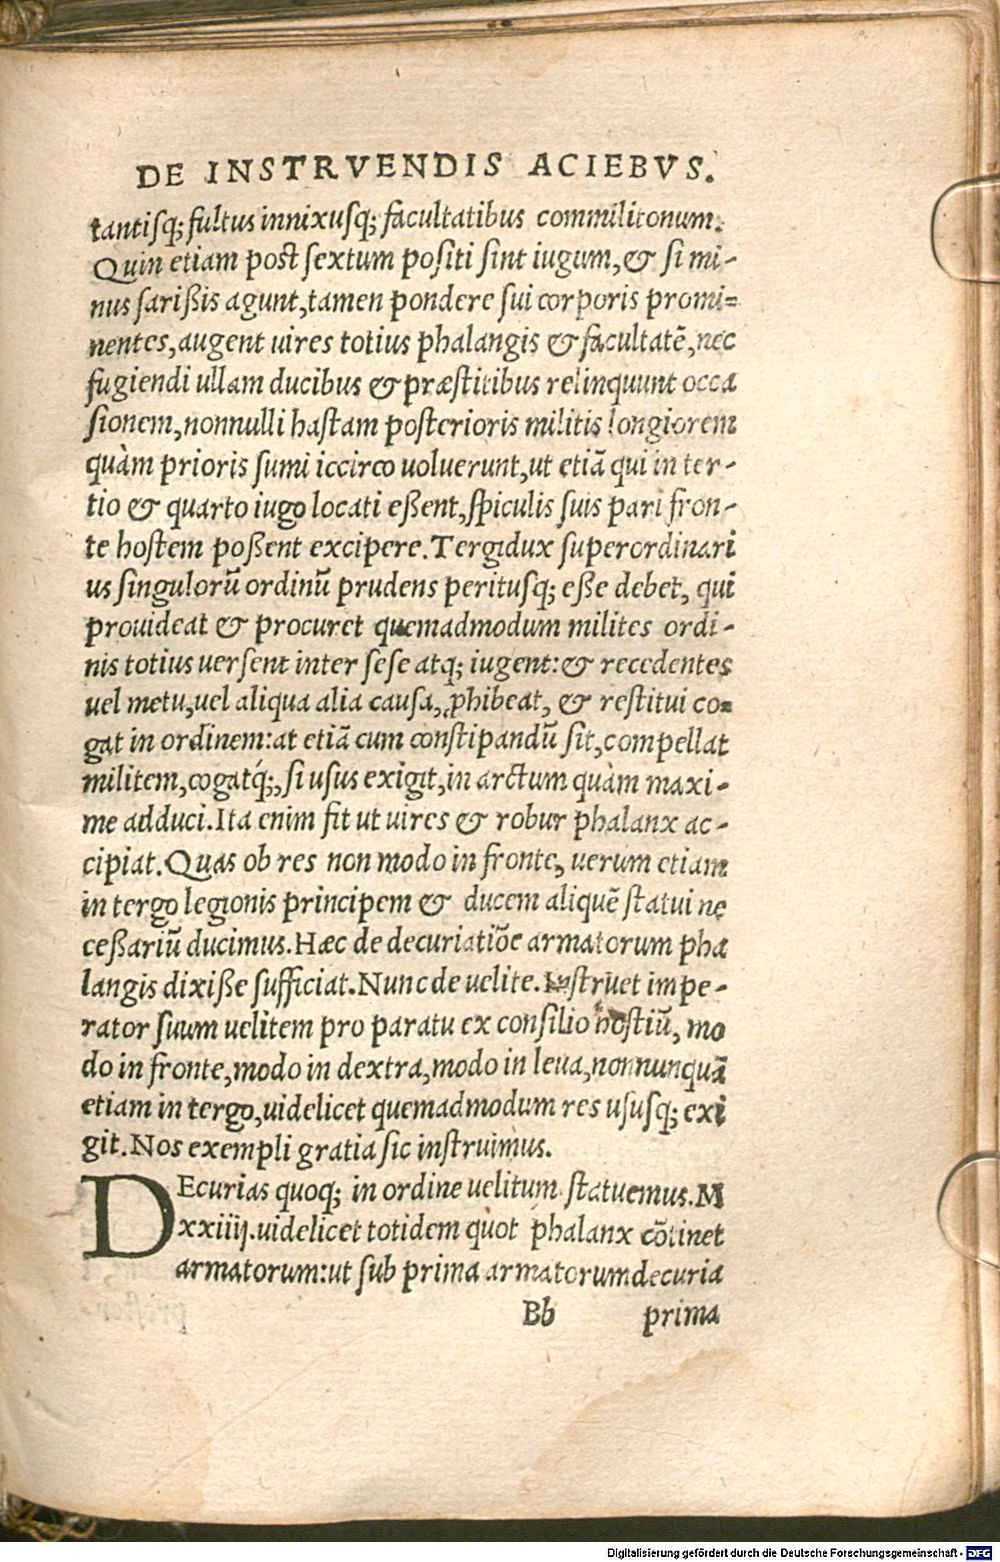 DE INSTRVENDIS ACIEBVS.
tantisq; fultus innixusq; facultatibus commilitonum.
Quin etiam post sextum positi sint iugum, & si mi-
nus sarißis agunt, tamen pondere sui corporis promi=
nentes, augent uires totius phalangis & facultatē, nec
fugiendi ullam ducibus & præstitibus relinquunt occa
sionem, nonnulli hastam posterioris militis longiorem
quàm prioris sumi iccirco uoluerunt, ut etiā qui in ter-
tio & quarto iugo locati eßent, spiculis suis pari fron-
te hostem poßent excipere. Tergidux superordinari
us singulorū ordinū prudens peritusq; eße debet, qui
prouideat & procuret quemadmodum milites ordi-
nis totius uersent inter sese atq; iugent: & recedentes
uel metu, uel aliqua alia causa, ꝓhibeat, & restitui co=
gat in ordinem: at etiā cum constipandū sit, compellat
militem, cogatq́;, si usus exigit, in arctum quàm maxi-
me adduci. Ita enim fit ut uires & robur phalanx ac-
cipiat. Quas ob res non modo in fronte, uerum etiam
in tergo legionis principem & ducem aliquē statui ne
ceßariū ducimus. Hæc de decuriatiōe armatorum pha
langis dixiße sufficiat. Nunc de uelite. Instruet impe-
rator suum uelitem pro paratu ex consilio hostiū, mo
do in fronte, modo in dextra, modo in leua, nonnunquā
etiam in tergo, uidelicet quemadmodum res ususq; exi
git. Nos exempli gratia sic instruimus.
DEcurias quoq; in ordine uelitum statuemus. M
xxiiij. uidelicet totidem quot phalanx cōtinet
armatorum: ut sub prima armatorum decuria
Bb prima
Digitalisierung gefördert durch die Deutsche Forschungsgemeinschaft - DFG